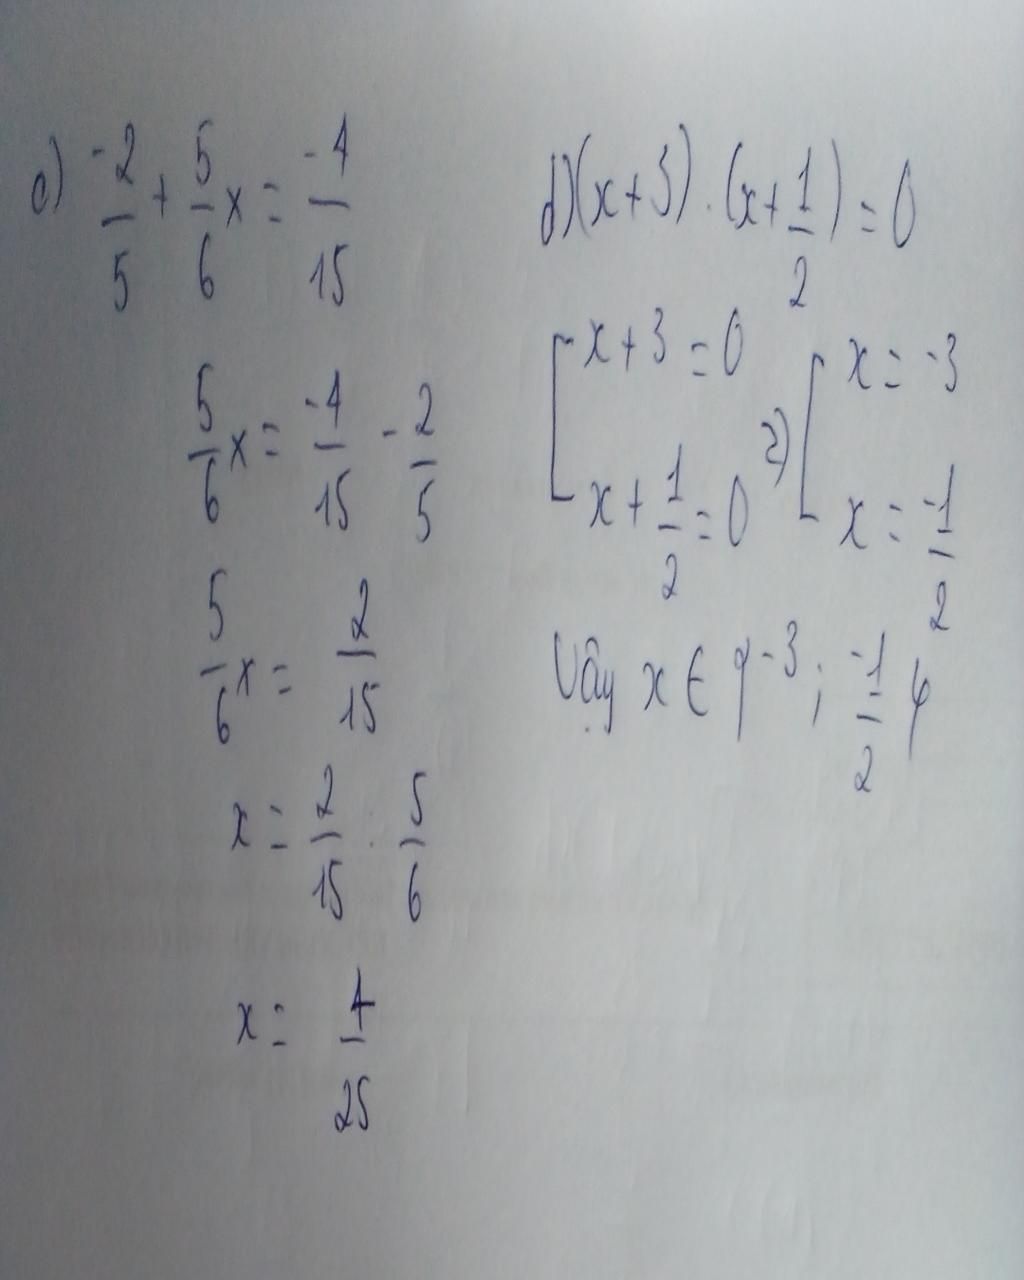 c) -2/5 + 5/6 x = -4/15
5/6 x = -4/15 - 2/5
5/6 x = 2/15
x = 2/15 : 5/6
x = 4/25
d) (x + 3) . (x + 1/2) = 0
[ x + 3 = 0 => [ x = -3
x + 1/2 = 0 x = -1/2
Vậy x ∈ { -3 ; -1/2 }